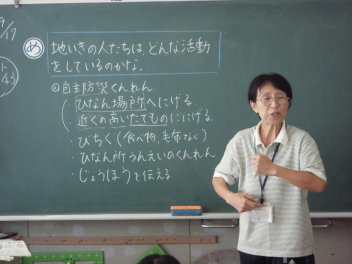 9/17
め
地いきの人たちは、どんな活動
をしているのかな。
◎自主防災くんれん
(ひなん場所へにげる
・近くの高いたてものににげる
・びちく(食べ物、毛布など)
・ひなん所うんえいのくんれん
・じょうほうを伝える